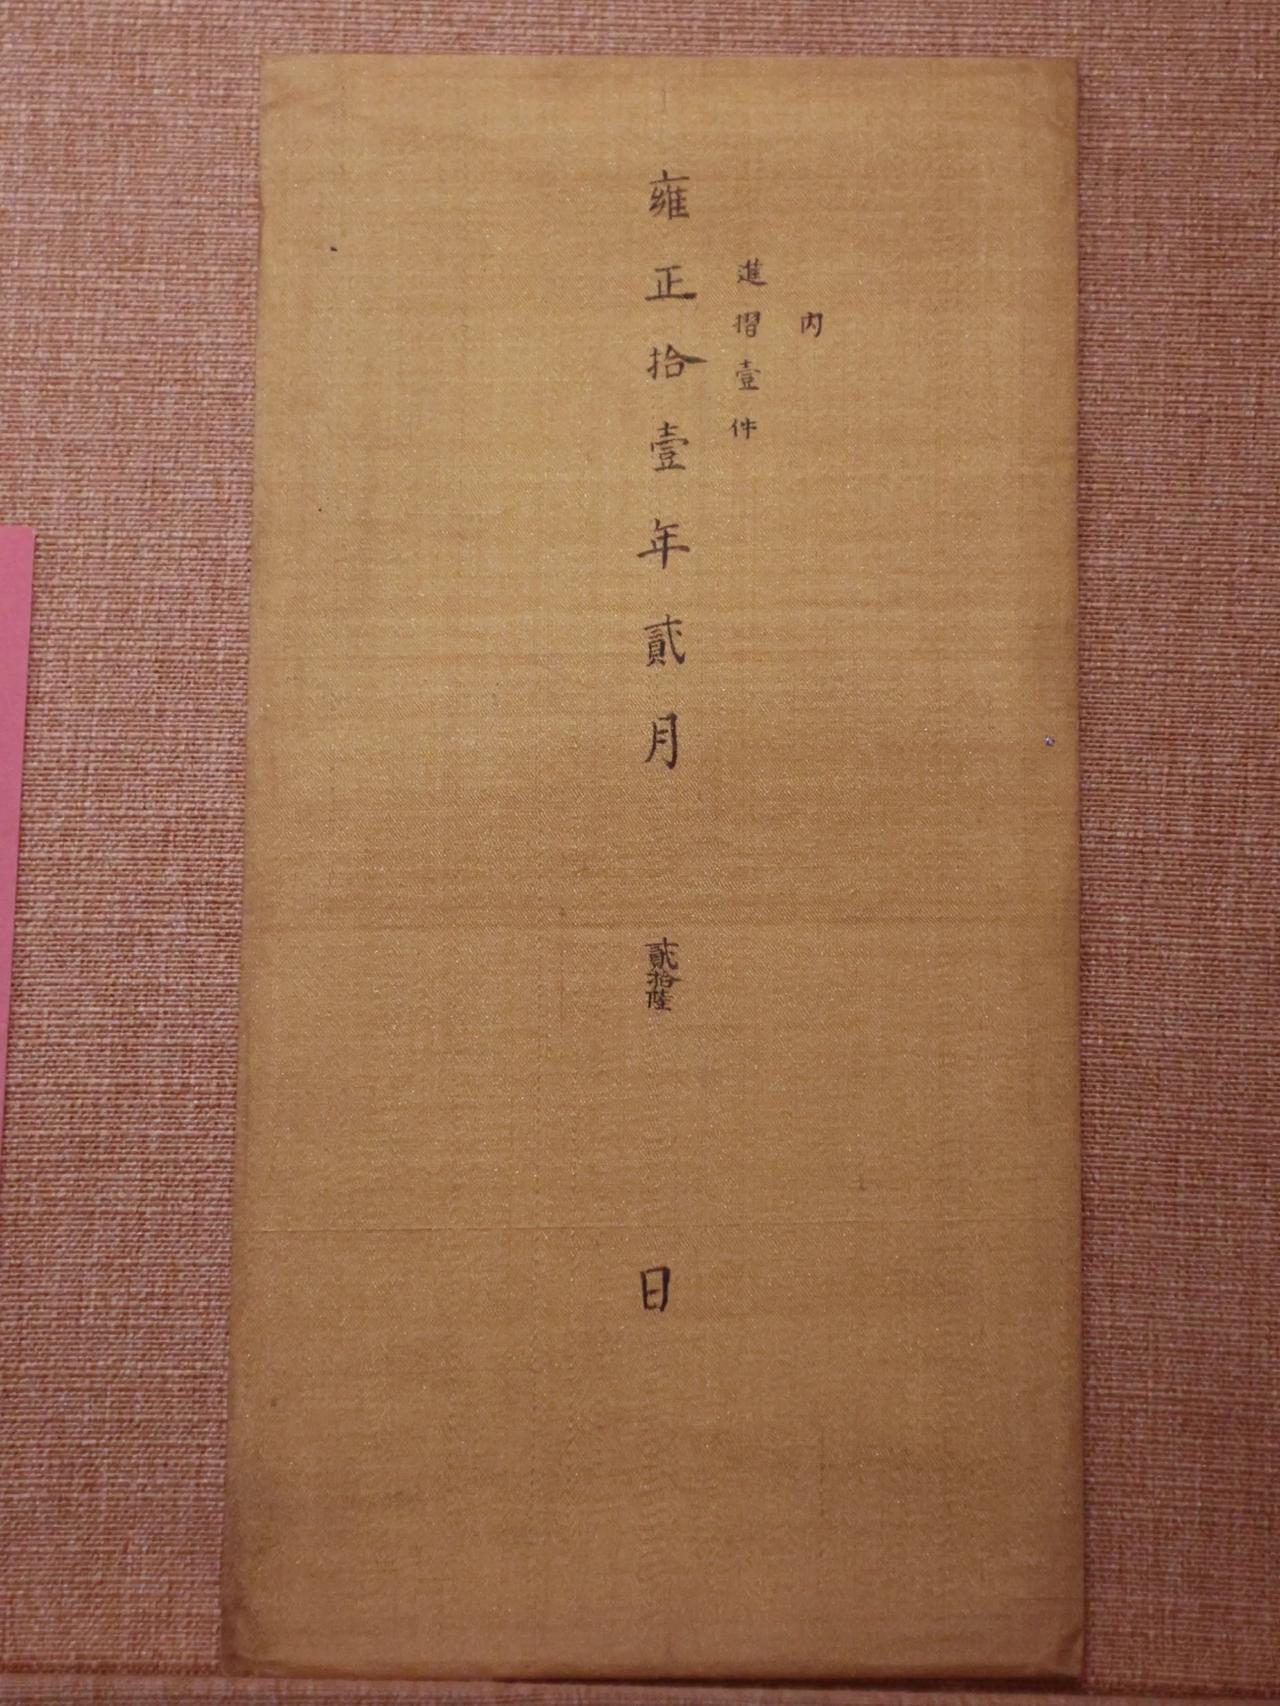 內
進摺壹件
雍正拾壹年貳月貳拾陸日